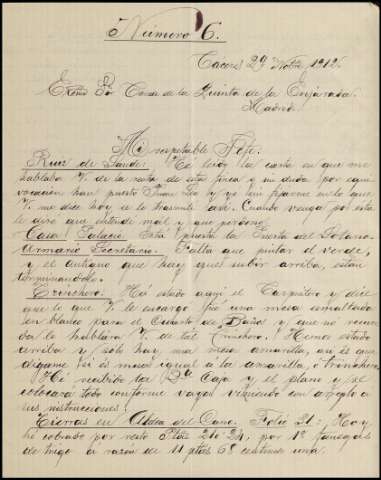 Número 6.
Caceres 29 Nvbre 1912.
Exmo Sr Conde de la Quinta de la Enjarada.
Madrid.
Mi respetable Jefe.
Ruiz de Sande: He leido la carta en que me
hablaba V. de la nota de esta finca y sin duda por equi
vocacion han puesto
V. me dice hoy se lo trasmite asi. Cuando venga por esta
le dire que entendi mal y que perdone.
Casa Palacio. Está puesta la Puerta del Sotano.
Armario Secretario. Falta que pintar el verde,
y el antiguo que hay que subir arriba, estan
terminandolo.
Trinchero. Ha estado aqui el Carpintero y dice
que lo que V. le encargo fue una mesa esmaltada
en blanco para el Cuarto de Baños y que no recuer
da le hablara V. de tal trinchero. Hemos estado
arriba y solo hay una mesa amarilla, asi es que
digame si es mesa igual a la amarilla, o trinchero.
He recibido la Caja y el plano y se
colocará todo conforme vaya viniendo con arreglo a
sus instrucciones.
Tierras en Aldea del Cano. Folio 21: Hoy
he cobrado por resto Ptas 210 24, por 18 fanegas
de trigo a razon de 11 ptas 68 centimos una.